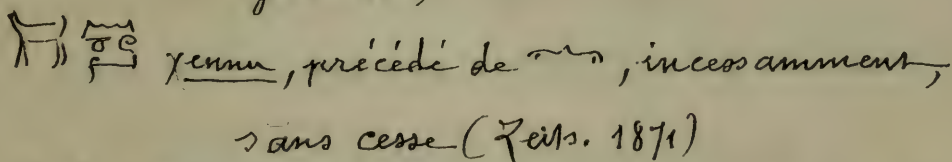 χennu, précédé de 𓂜, incessamment,
sans cesse (Zeits. 1871)